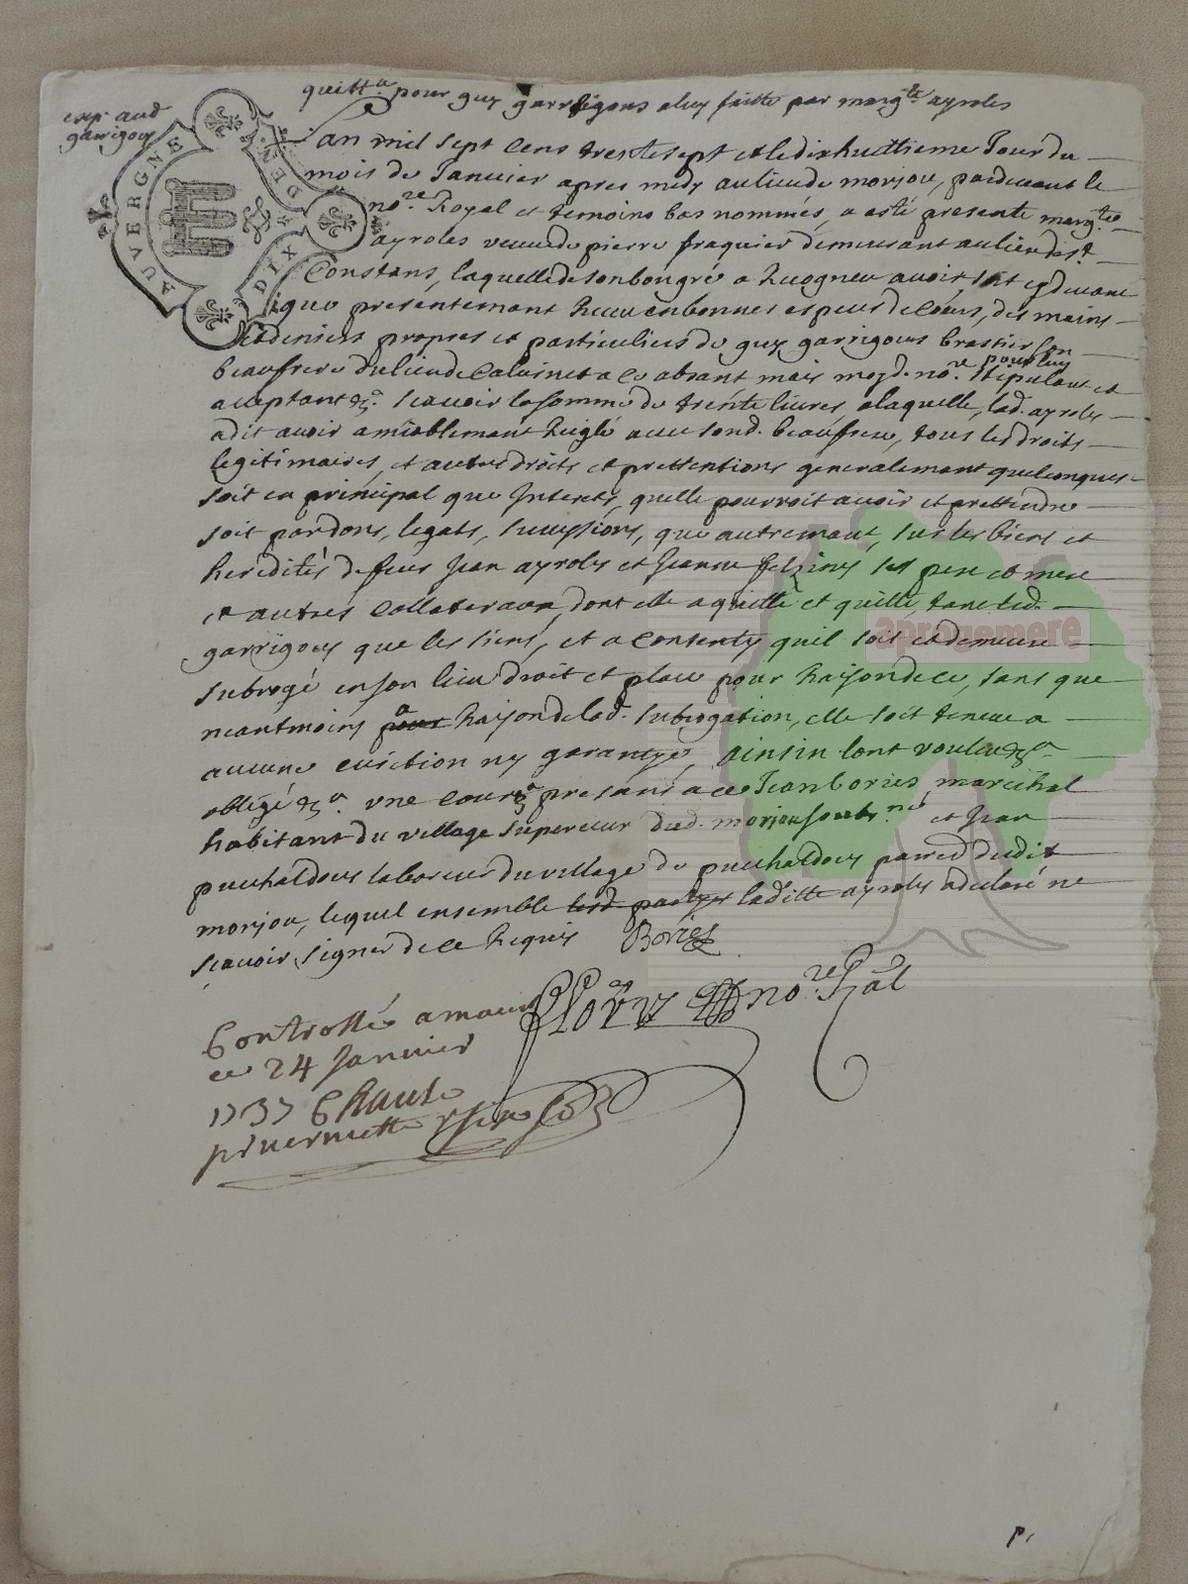 quitt.ce pour guy garrigous a luy faitte par marg.te ayroles
exp. aud
garrigous
AUVERGNE
DIX DEN.
Lan mil sept cens trente sept et le dix huittieme Jour du
mois de Janvier apres midy au lieu de monjou, pardevant le
no.re Royal et temoins bas nommés, a esté presente marg.te
ayroles veuve de pierre fraquier demeurant au lieu de s.t
Constans, laquelle de son bon gré a Recogneu avoir cy devant
que presentement Receu en bonnes especes de cours, des mains
et deniers propres et particuliers de guy garrigous brassier son
beaufrere du lieu de a ce absant mais moyd. no.re pour luy stipulant et
acceptant &c.a scavoir la somme de trente livres, a laquelle, lad. ayroles
a dit avoir amiablemant Reglé avec sond. beaufrere, tous les droits
legitimaires, et autres droits et prettentions generalemant quelconques
soit en principal que Interets, quelle pourroit avoir et prettendre
soit par dons, legats, successions, que autremant, sur les biens et
heredités de feus Jean ayroles et Jeanne felzines ses pere et mere
et autres collateraux, dont elle a quitté et quitte tant led.
garrigous que les siens, et a consenty quil soit et demeure
subrogé en son lieu droit et place pour Raison de ce, sans que
neantmoins pour a Raison de lad. subrogation, elle soit tenue a
aucune eviction ny garantye, ainsin lont voulu &c.a
obligé &c.a une cour &c.a presans a ce Jean bories marechal
habitant du village superieur dud. monjou soubs.né et Jean
puechaldous laboureur du village de puechaldous par.e dudit
monjou, lequel ensemble lesd. partyes laditte ayroles a declaré ne
scavoir signer de ce Requis Bories
no.re Royal
Controllé a maurs
ce 24 Janvier
1737 R
p.